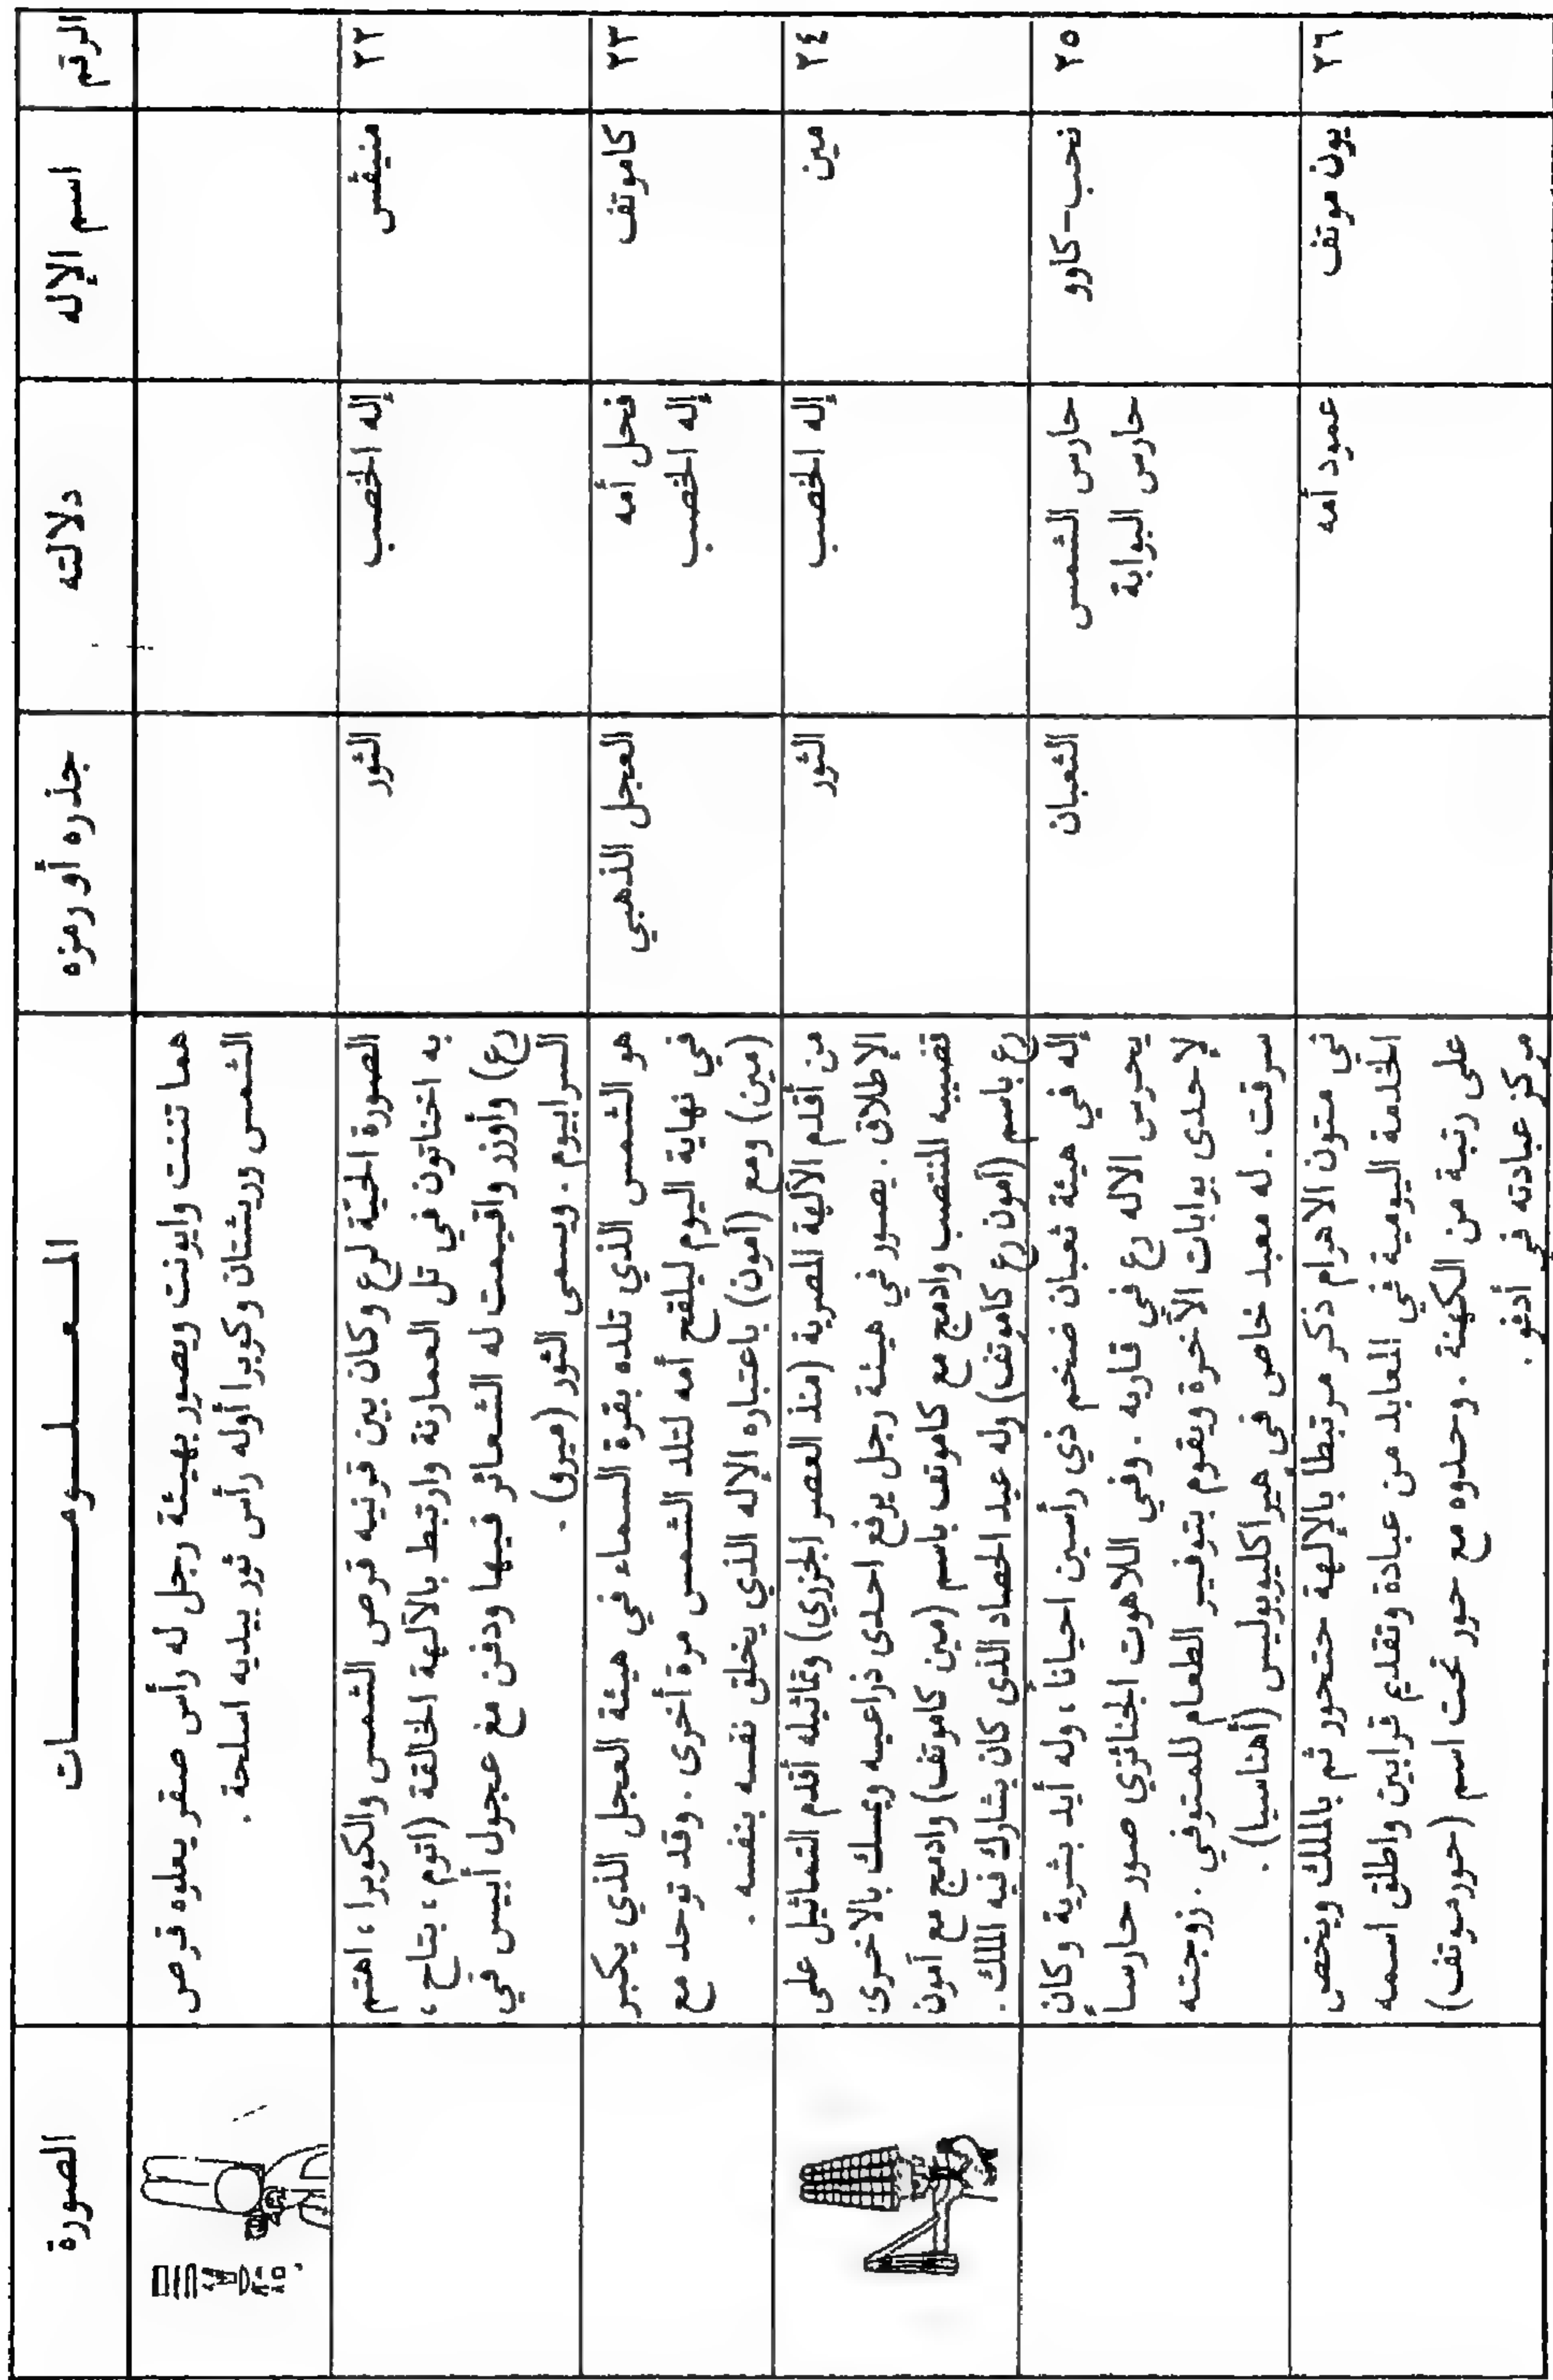 الرقم	اسم الإله	دلالته	جذره أو رمزه	المعلومات	الصورة
هما تننت وايونت ويصور بهيئة رجل له رأس صقر يعلوه قرص
الشمس وريشتان وكوبرا أوله رأس ثور بيديه اسلحة .
٢٢	منيفس	إله الخصب	الثور	الصورة الحيّة لرع وكان بين قرنيه قرص الشمس والكوبرا ، اهتم
به اخناتون في تل العمارنة وارتبط بالآلهة الخالقة (اتوم ، بتاح ،
رع) وأوزر واقيمت له الشعائر فيها ودفن مع عجول أبيس في
السرابيوم . ويسمى الثور (ميرو) .
٢٣	كاموتف	فحل أمه	العجل الذهبي	هو الشمس الذي تلده بقرة السماء في هيئة العجل الذي يكبر
إله الخصب	في نهاية اليوم ليلقح أمه لتلد الشمس مرة أخرى . وقد توحد مع
(مين) ومع (آمون) باعتباره الإله الذي يخلق نفسه بنفسه .
٢٤	مين	إله الخصب	الثور	من أقدم الآلهة المصرية (منذ العصر الجزري) وتماثيله أقدم التماثيل على
الإطلاق . يصور في هيئة رجل يرفع احدى ذراعيه ويمسك بالاخرى
قضيبه المنتصب وادمج مع كاموتف باسم (مين كاموتف) وادمج مع آمون
رع باسم (آمون رع كاموتف) وله عيد الحصاد الذي كان يشارك فيه الملك .
٢٥	نحب-كاوو	حارس الشمس	الثعبان	إله في هيئة ثعبان ضخم ذي رأسين احياناً ، وله أيد بشرية وكان
حارس البوابة	يحرس الاله رع في قاربه . وفي اللاهوت الجنائزي صور حارساً
لإحدى بوابات الآخرة ويقوم بتوفير الطعام للمتوفي . زوجته
سرقت . له معبد خاص في هيراكليوبوليس (أهناسيا) .
٢٦	يون موتف	عمود أمه	في متون الاهرام ذكر مرتبطا بالإلهة حتحور ثم بالملك ويخص
الخدمة اليومية في المعابد من عبادة وتقديم قرابين واطلق اسمه
على رتبة من الكهنة . وحدوه مع حور تحت اسم (حورموتف)
مركز عبادته في أدفو .